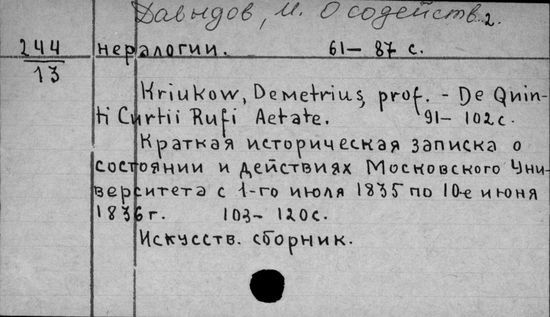 Давыдов, И. О содейств. 2.
244 нералогии. 61-87 с.
13
Kriukow, Demetrius, prof. - De Quin-
ti Curtii Rufi Aetate. 91-102 с.
Краткая историческая записка о
состоянии и действиях Московского Уни-
верситета с 1-го июля 1835 по 10-е июня
1836 г. 103-120 с.
Искусств. сборник.